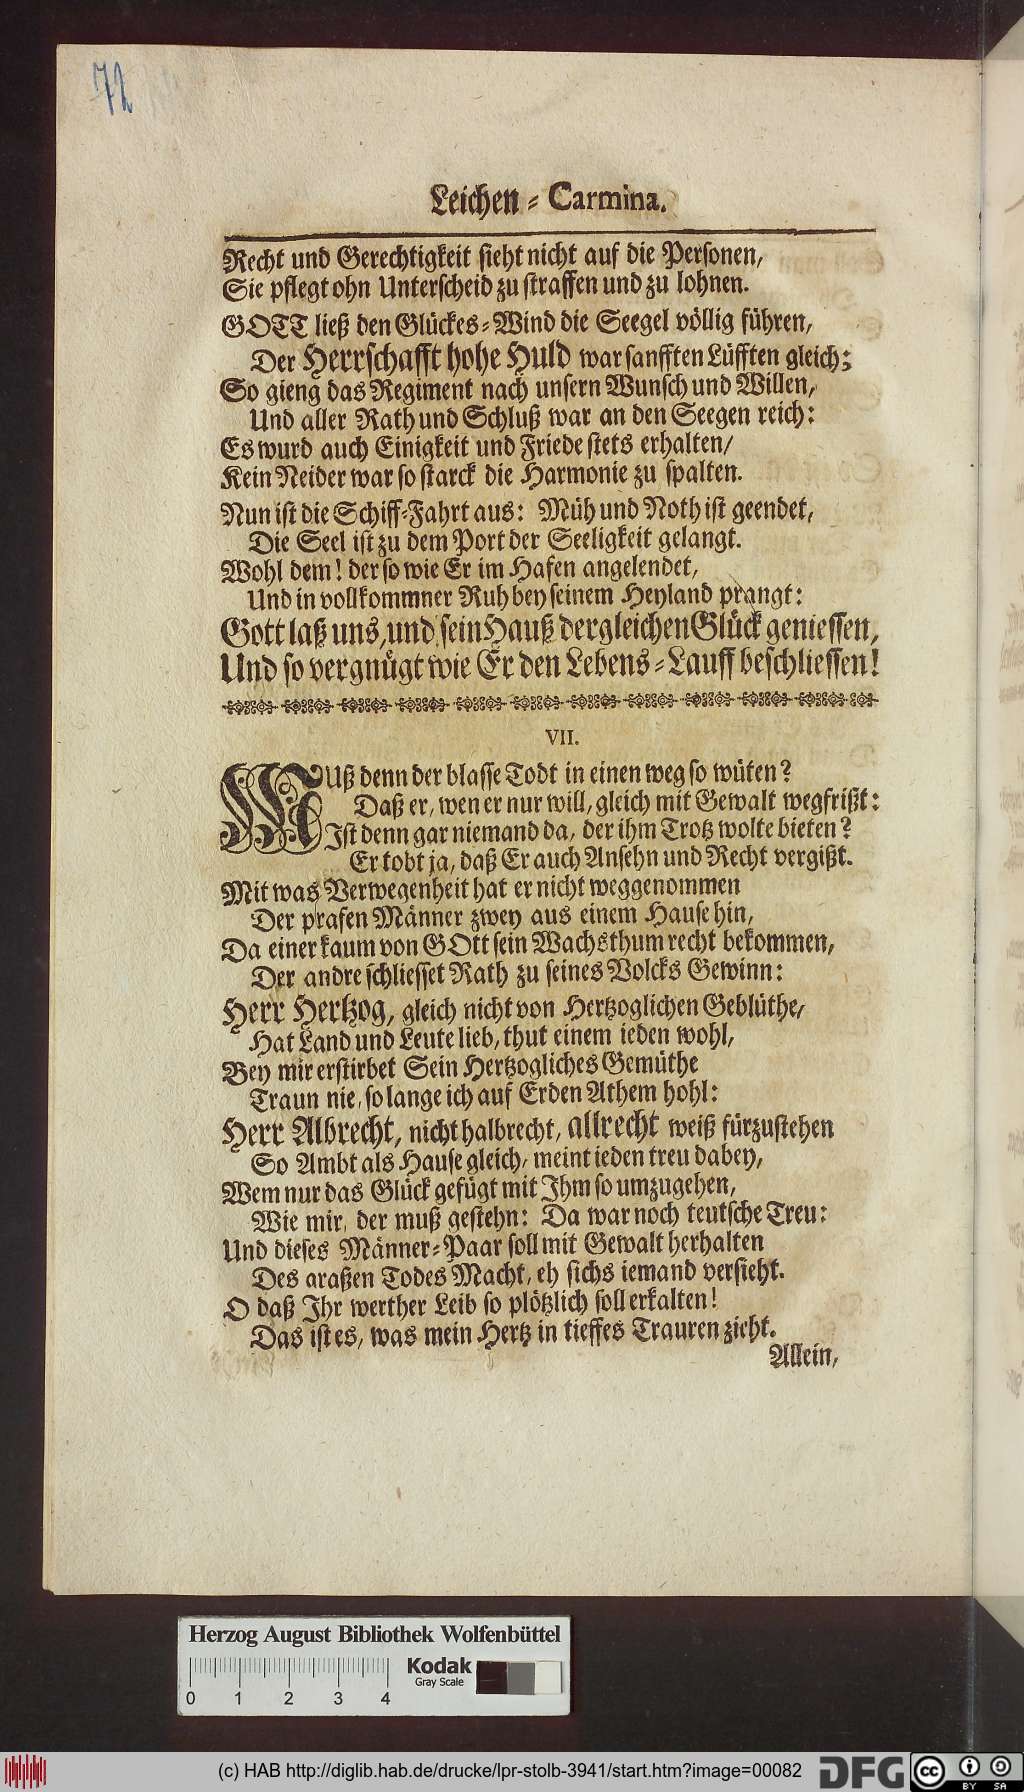 72
Leichen-Carmina.
Recht und Gerechtigkeit sieht nicht auf die Personen,
Sie pflegt ohn Unterscheid zu straffen und zu lohnen.
GOTT ließ den Glückes-Wind die Seegel völlig führen,
Der Herrschafft hohe Huld war sanfften Lüfften gleich;
So gieng das Regiment nach unsern Wunsch und Willen,
Und aller Rath und Schluß war an den Seegen reich:
Es wurd auch Einigkeit und Friede stets erhalten/
Kein Neider war so starck die Harmonie zu spalten.
Nun ist die Schiff-Fahrt aus: Müh und Noth ist geendet,
Die Seel ist zu dem Port der Seeligkeit gelangt.
Wohl dem! der so wie Er im Hafen angelendet,
Und in vollkommner Ruh bey seinem Heyland prangt:
Gott laß uns, und sein Hauß dergleichen Glück geniessen,
Und so vergnügt wie Er den Lebens-Lauff beschliessen!
VII.
MUß denn der blasse Todt in einen weg so wüten?
Daß er, wen er nur will, gleich mit Gewalt wegfrißt:
Ist denn gar niemand da, der ihm Trotz wolte bieten?
Er tobt ja, daß Er auch Ansehn und Recht vergißt.
Mit was Verwegenheit hat er nicht weggenommen
Der prafen Männer zwey aus einem Hause hin,
Da einer kaum von GOtt sein Wachsthum recht bekommen,
Der andre schliesset Rath zu seines Volcks Gewinn:
Herr Hertzog, gleich nicht von Hertzoglichen Geblüthe/
Hat Land und Leute lieb, thut einem ieden wohl,
Bey mir erstirbet Sein Hertzogliches Gemüthe
Traun nie, so lange ich auf Erden Athem hohl:
Herr Albrecht, nicht halbrecht, allrecht weiß fürzustehen
So Ambt als Hause gleich, meint ieden treu dabey,
Wem nur das Glück gefügt mit Ihm so umzugehen,
Wie mir, der muß gestehn: Da war noch teutsche Treu:
Und dieses Männer-Paar soll mit Gewalt herhalten
Des araßen Todes Macht, eh sichs iemand versieht.
O daß Ihr werther Leib so plötzlich soll erkalten!
Das ist es, was mein Hertz in tieffes Trauren zieht.
Allein,
Herzog August Bibliothek Wolfenbüttel
Kodak
Gray Scale
0 1 2 3 4
(c) HAB http://diglib.hab.de/drucke/lpr-stolb-3941/start.htm?image=00082
DFG
cc BY SA